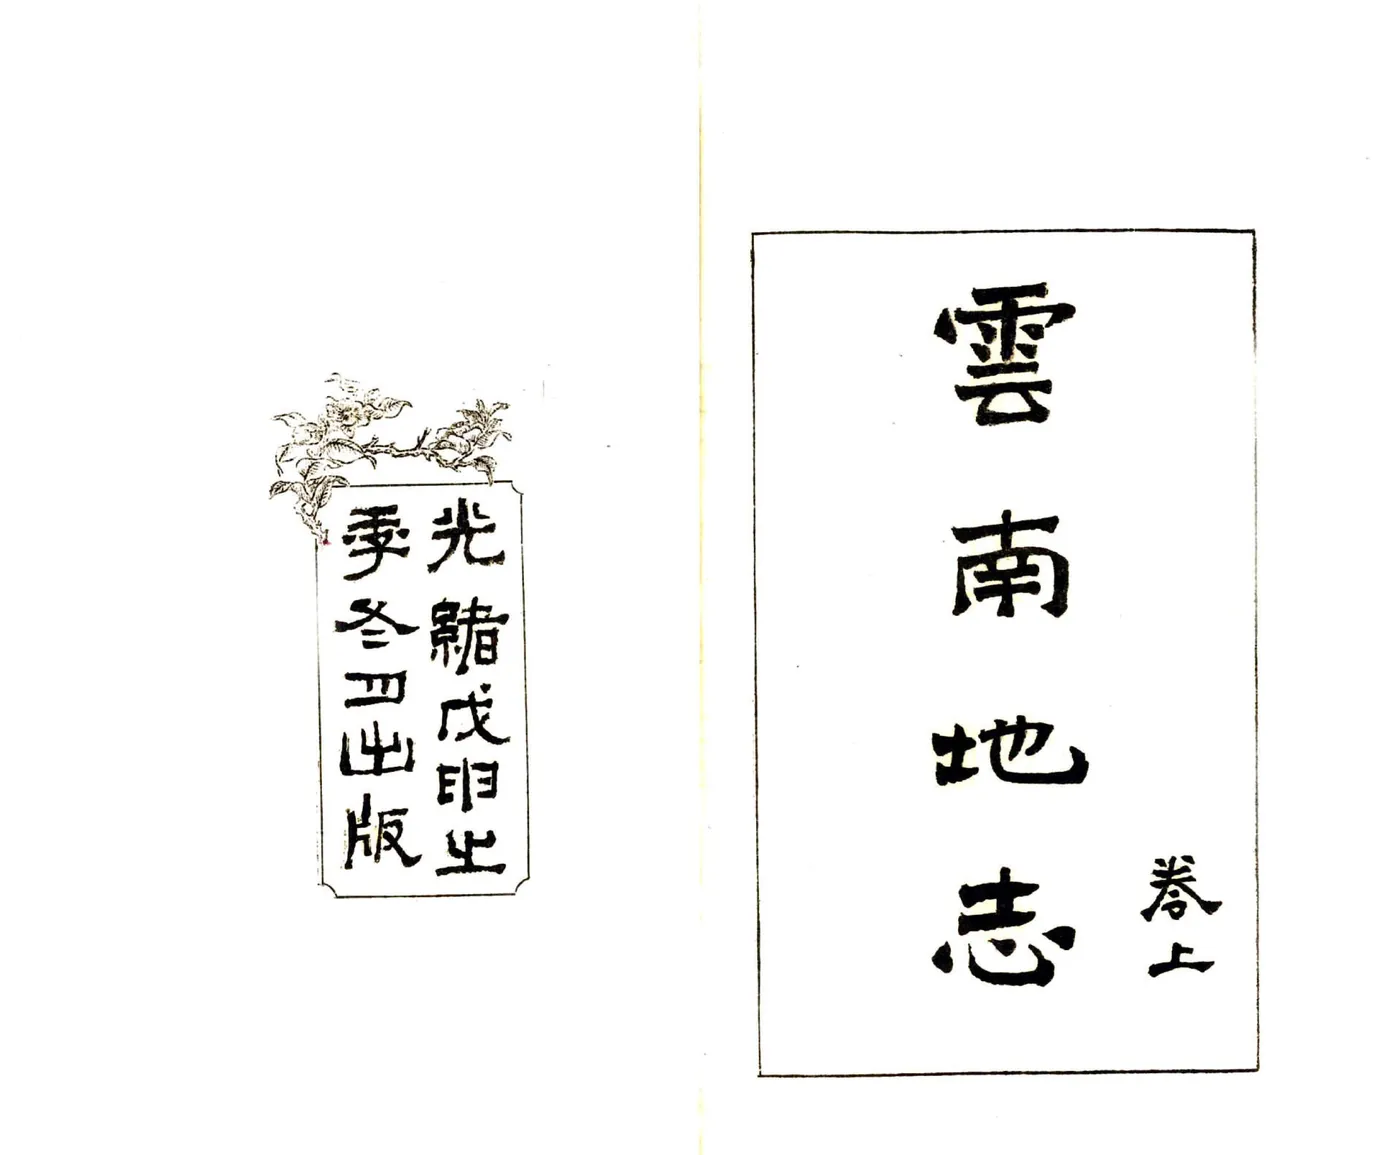 雲南地志
卷上
光緒戊申之
季冬月出版